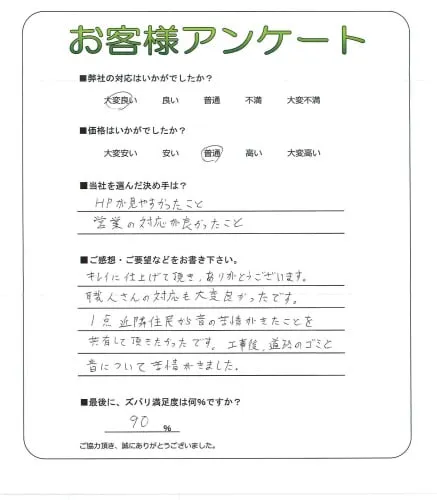 お客様アンケート
■弊社の対応はいかがでしたか？
大変良い 良い 普通 不満 大変不満
■価格はいかがでしたか？
大変安い 安い 普通 高い 大変高い
■当社を選んだ決め手は？
HPが見やすかったこと
営業の対応が良かったこと
■ご感想・ご要望などをお書き下さい。
キレイに仕上げて頂き、ありがとうございます。
職人さんの対応も大変良かったです。
1点近隣住民から音の苦情がきたことを
共有して頂きたかったです。工事後、道路のゴミと
音について苦情がきました。
■最後に、ズバリ満足度は何%ですか？
90 %
ご協力頂き、誠にありがとうございました。